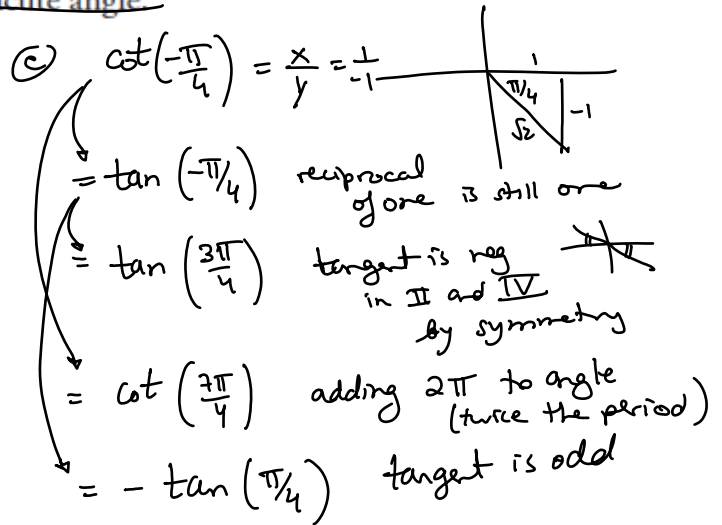 acute angle.
(c) cot(-π/4) = x/y = 1/-1
1
π/4
-1
√2
= tan (-π/4) reciprocal
of one is still one
= tan (3π/4) tangent is neg
in II and IV
by symmetry
= cot (7π/4) adding 2π to angle
(twice the period)
= - tan (π/4) tangent is odd